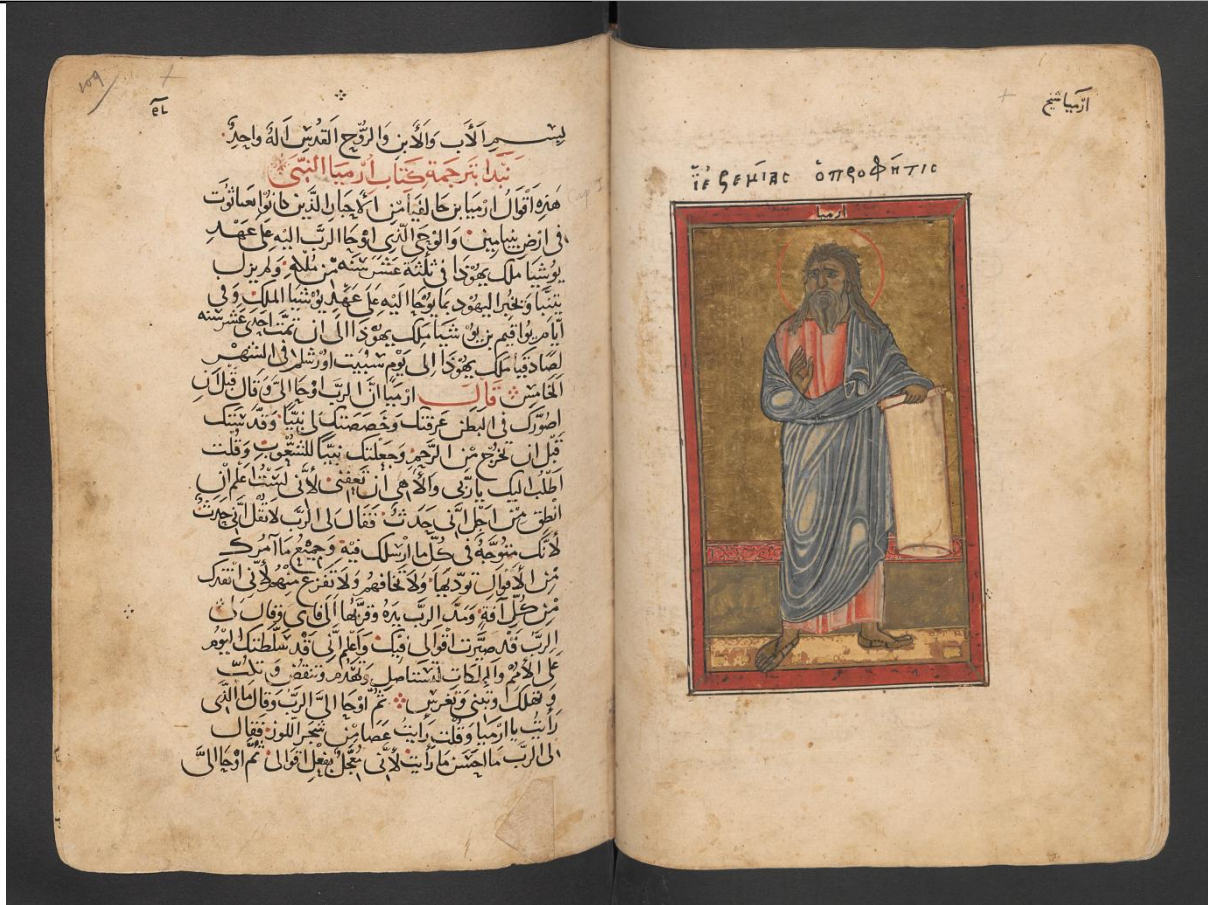 ارميا
ἱερεμίας ὁ προφήτις
ارميا
109
بسم الاب والابن والروح القدس اله واحد
نبدا بترجمة كتاب ارميا النبي
هذه اقوال ارميا بن حالقيا من الاحبار الذين كانوا بعاثوت
في ارض بنيامين والوحي الذي اوحا الرب اليه على عهد
يوشيا ملك يهودا في ثلثة عشر سنه من ملكه ولم يزل
يتنبا ويخبر اليهود بما يوحا اليه على عهد يوشيا الملك وفي
ايام يواقيم بن يوشيا ملك يهودا الى ان تمت احدى عشر سنه
لصادقيا ملك يهودا الى يوم سبيت اورشلم في الشهر
الخامس قال ارميا ان الرب اوحا الي وقال قبل ان
اصورك في البطن عرفتك وخصصتك لي نبيا وقدستك
قبل ان تخرج من الرحم وجعلتك نبيا للشعوب وقلت
اطلب اليك يا ربي والاهي ان تعفني لاني لست اعلم ان
انطق من اجل اني حدث فقال لي الرب لا تقل اني حدث
لانك متوجه في كل ما ارسلك فيه وجميع ما امرك
من الاقوال تودبها ولا تخافهم ولا تفزع منهم لاني انقذك
من كل افة ومد الرب يده وقربها الى فمي وقال لي
الرب قد صيرت اقوالي فيك واعلم اني قد سلطتك اليوم
على الامم والملكات لتستاصل وتهدم وتنقض وتكب
وتهلك وتبني وتغرس ثم اوحا الي الرب وقال ما الذي
رايت يا ارميا وقلت رايت عصا من شجر اللوز فقال
لي الرب ما احسن ما رايت لاني معجل بفعل اقوالي ثم اوحا الي